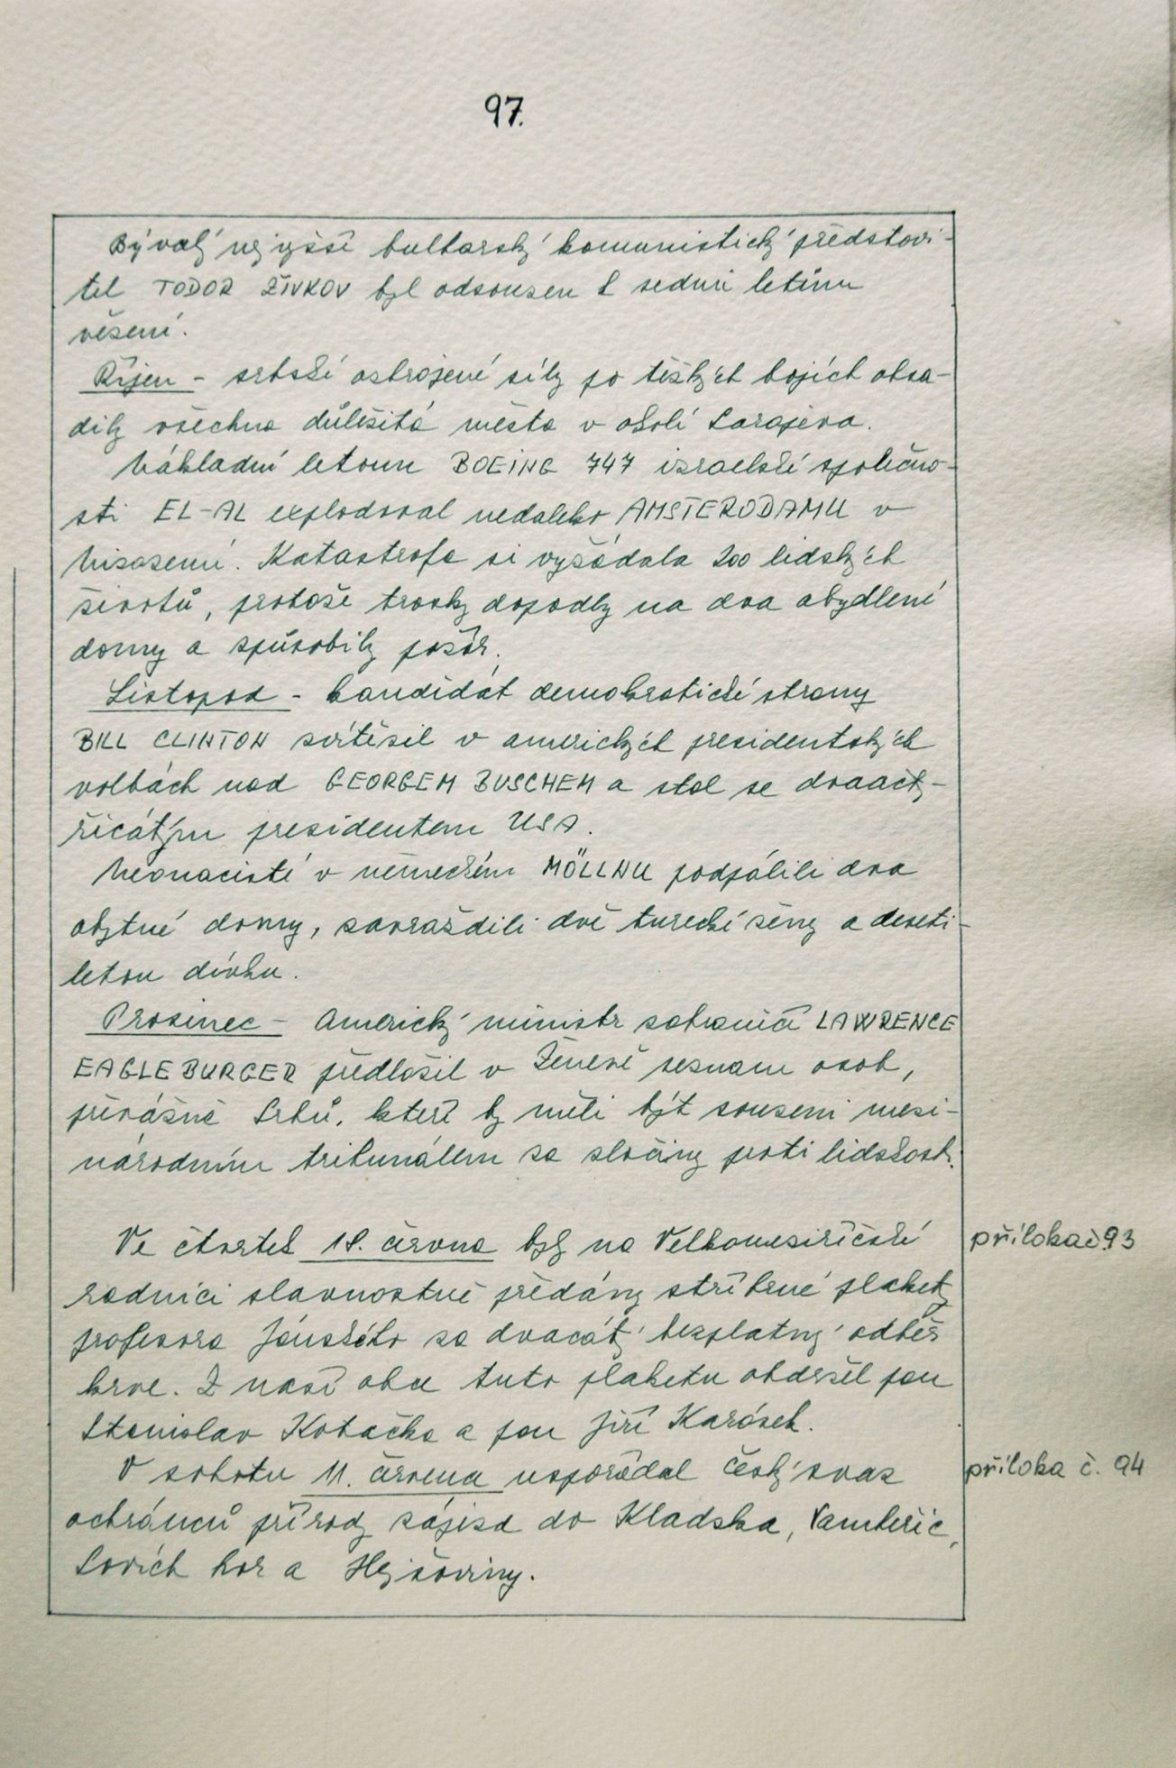 97.
Bývalý nejvyšší bulharský komunistický představi-
tel TODOR ŽIVKOV byl odsouzen k sedmi letému
vězení.
Říjen - srbské ozbrojené síly po těžkých bojích obsa-
dily všechna důležitá města v okolí Sarajeva.
Nákladní letoun BOEING 747 izraelské společno-
sti EL-AL explodoval nedaleko AMSTERODAMU v
Nizozemí. Katastrofa si vyžádala 200 lidských
životů, protože trosky dopadly na dva obydlené
domy a způsobily požár.
Listopad - kandidát demokratické strany
BILL CLINTON zvítězil v amerických presidentských
volbách nad GEORGEM BUSCHEM a stal se dvaačty-
řicátým presidentem USA.
Neonacisté v německém MÖLLNU podpálili dva
obytné domy, zavraždili dvě turecké ženy a deseti-
letou dívku.
Prosinec - Americký ministr zahraničí LAWRENCE
EAGLEBURGER předložil v Ženevě seznam osob,
převážně Srbů, kteří by měli být souzeni mezi-
národním tribunálem za zločiny proti lidskosti.
Ve čtvrtek 18. června byly na Velkomeziříčské příloha č. 93
radnici slavnostně předány stříbrné plakety
profesora Jánského za dvacátý bezplatný odběr
krve. Z naší obce tuto plaketu obdržel pan
Stanislav Kotačka a pan Jiří Karásek.
V sobotu 11. června uspořádal Český svaz příloha č. 94
ochránců přírody zájezd do Kladska, Vambeřic,
Sovích hor a Hejšoviny.